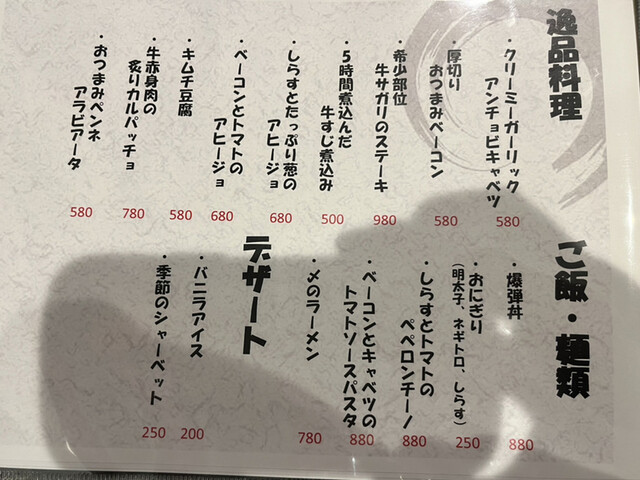 逸品料理
・クリーミーガーリック
アンチョビキャベツ
580
・厚切り
おつまみベーコン
580
・希少部位
牛サガリのステーキ
980
・5時間煮込んだ
牛すじ煮込み
500
・しらすとたっぷり葱の
アヒージョ
680
・ベーコンとトマトの
アヒージョ
680
・キムチ豆腐
580
・牛赤身肉の
炙りカルパッチョ
780
・おつまみペンネ
アラビアータ
580
ご飯・麺類
・爆弾丼
880
・おにぎり
(明太子、ネギトロ、しらす)
250
・しらすとトマトの
ペペロンチーノ
880
・ベーコンとキャベツの
トマトソースパスタ
880
・〆のラーメン
780
デザート
・バニラアイス
200
・季節のシャーベット
250